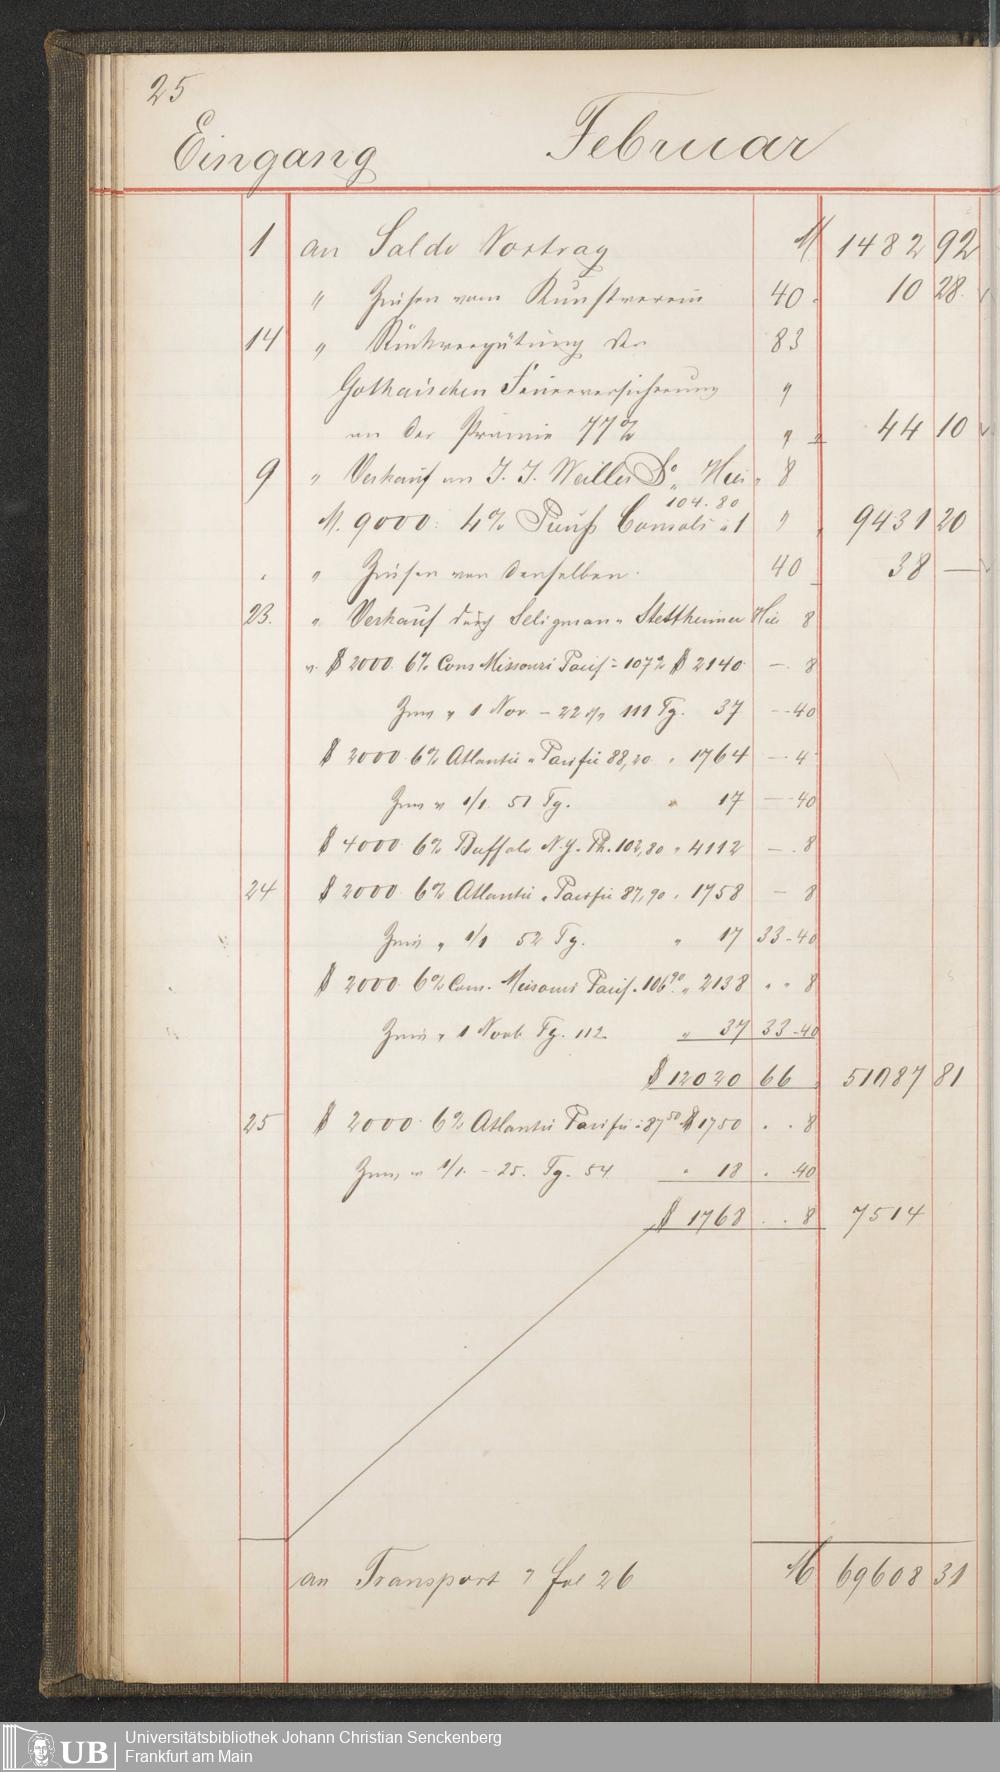 25
Eingang Februar
1 an Saldo Vortrag M 1482 92
" Zinsen vom Kunstverein 40 10 28
14 " Rückvergütung der 83
Gothaischen Feuerversicherung "
an der Prämie 77% " 44 10
9 " Verkauf an J. J. Weiller Hier 8
104.80
M. 9000. 4% Preuß Consols 1 " 9431 20
" Zinsen von denselben 40 38 —
23. " Verkauf durch Seligman & Stettheimer Hier 8
v. $ 2000. 6% Cons Missouri Pacif = 107% $ 2140 — 8
Zins v 1 Nov. – 22 111 Tg. 37 — 40
$ 2000 6% Atlantic & Pacific 88,20 " 1764 — 4
Zins v 1/1. 51 Tg. " 17 — 40
$ 4000 6% Buffalo N.Y. Ph. 102,80 " 4112 — 8
24 $ 2000 6% Atlantic & Pacific 87,90 " 1758 — 8
Zins " 1/1 52 Tg. " 17 33 - 40
$ 2000 6% Cons. Missouri Pacif. 106 90 " 2138 " " 8
Zins " 1 Novb Tg. 112 " 37 33 - 40
$ 12020 66 51087 81
25 $ 2000 6% Atlantic Pacific 87 50 $ 1750 . . 8
Zins v 1/1. – 25. Tg. 54 " 18 . 40
$ 1768 . . 8 7514
an Transport fol 26 M 69608 31
UB
Universitätsbibliothek Johann Christian Senckenberg
Frankfurt am Main